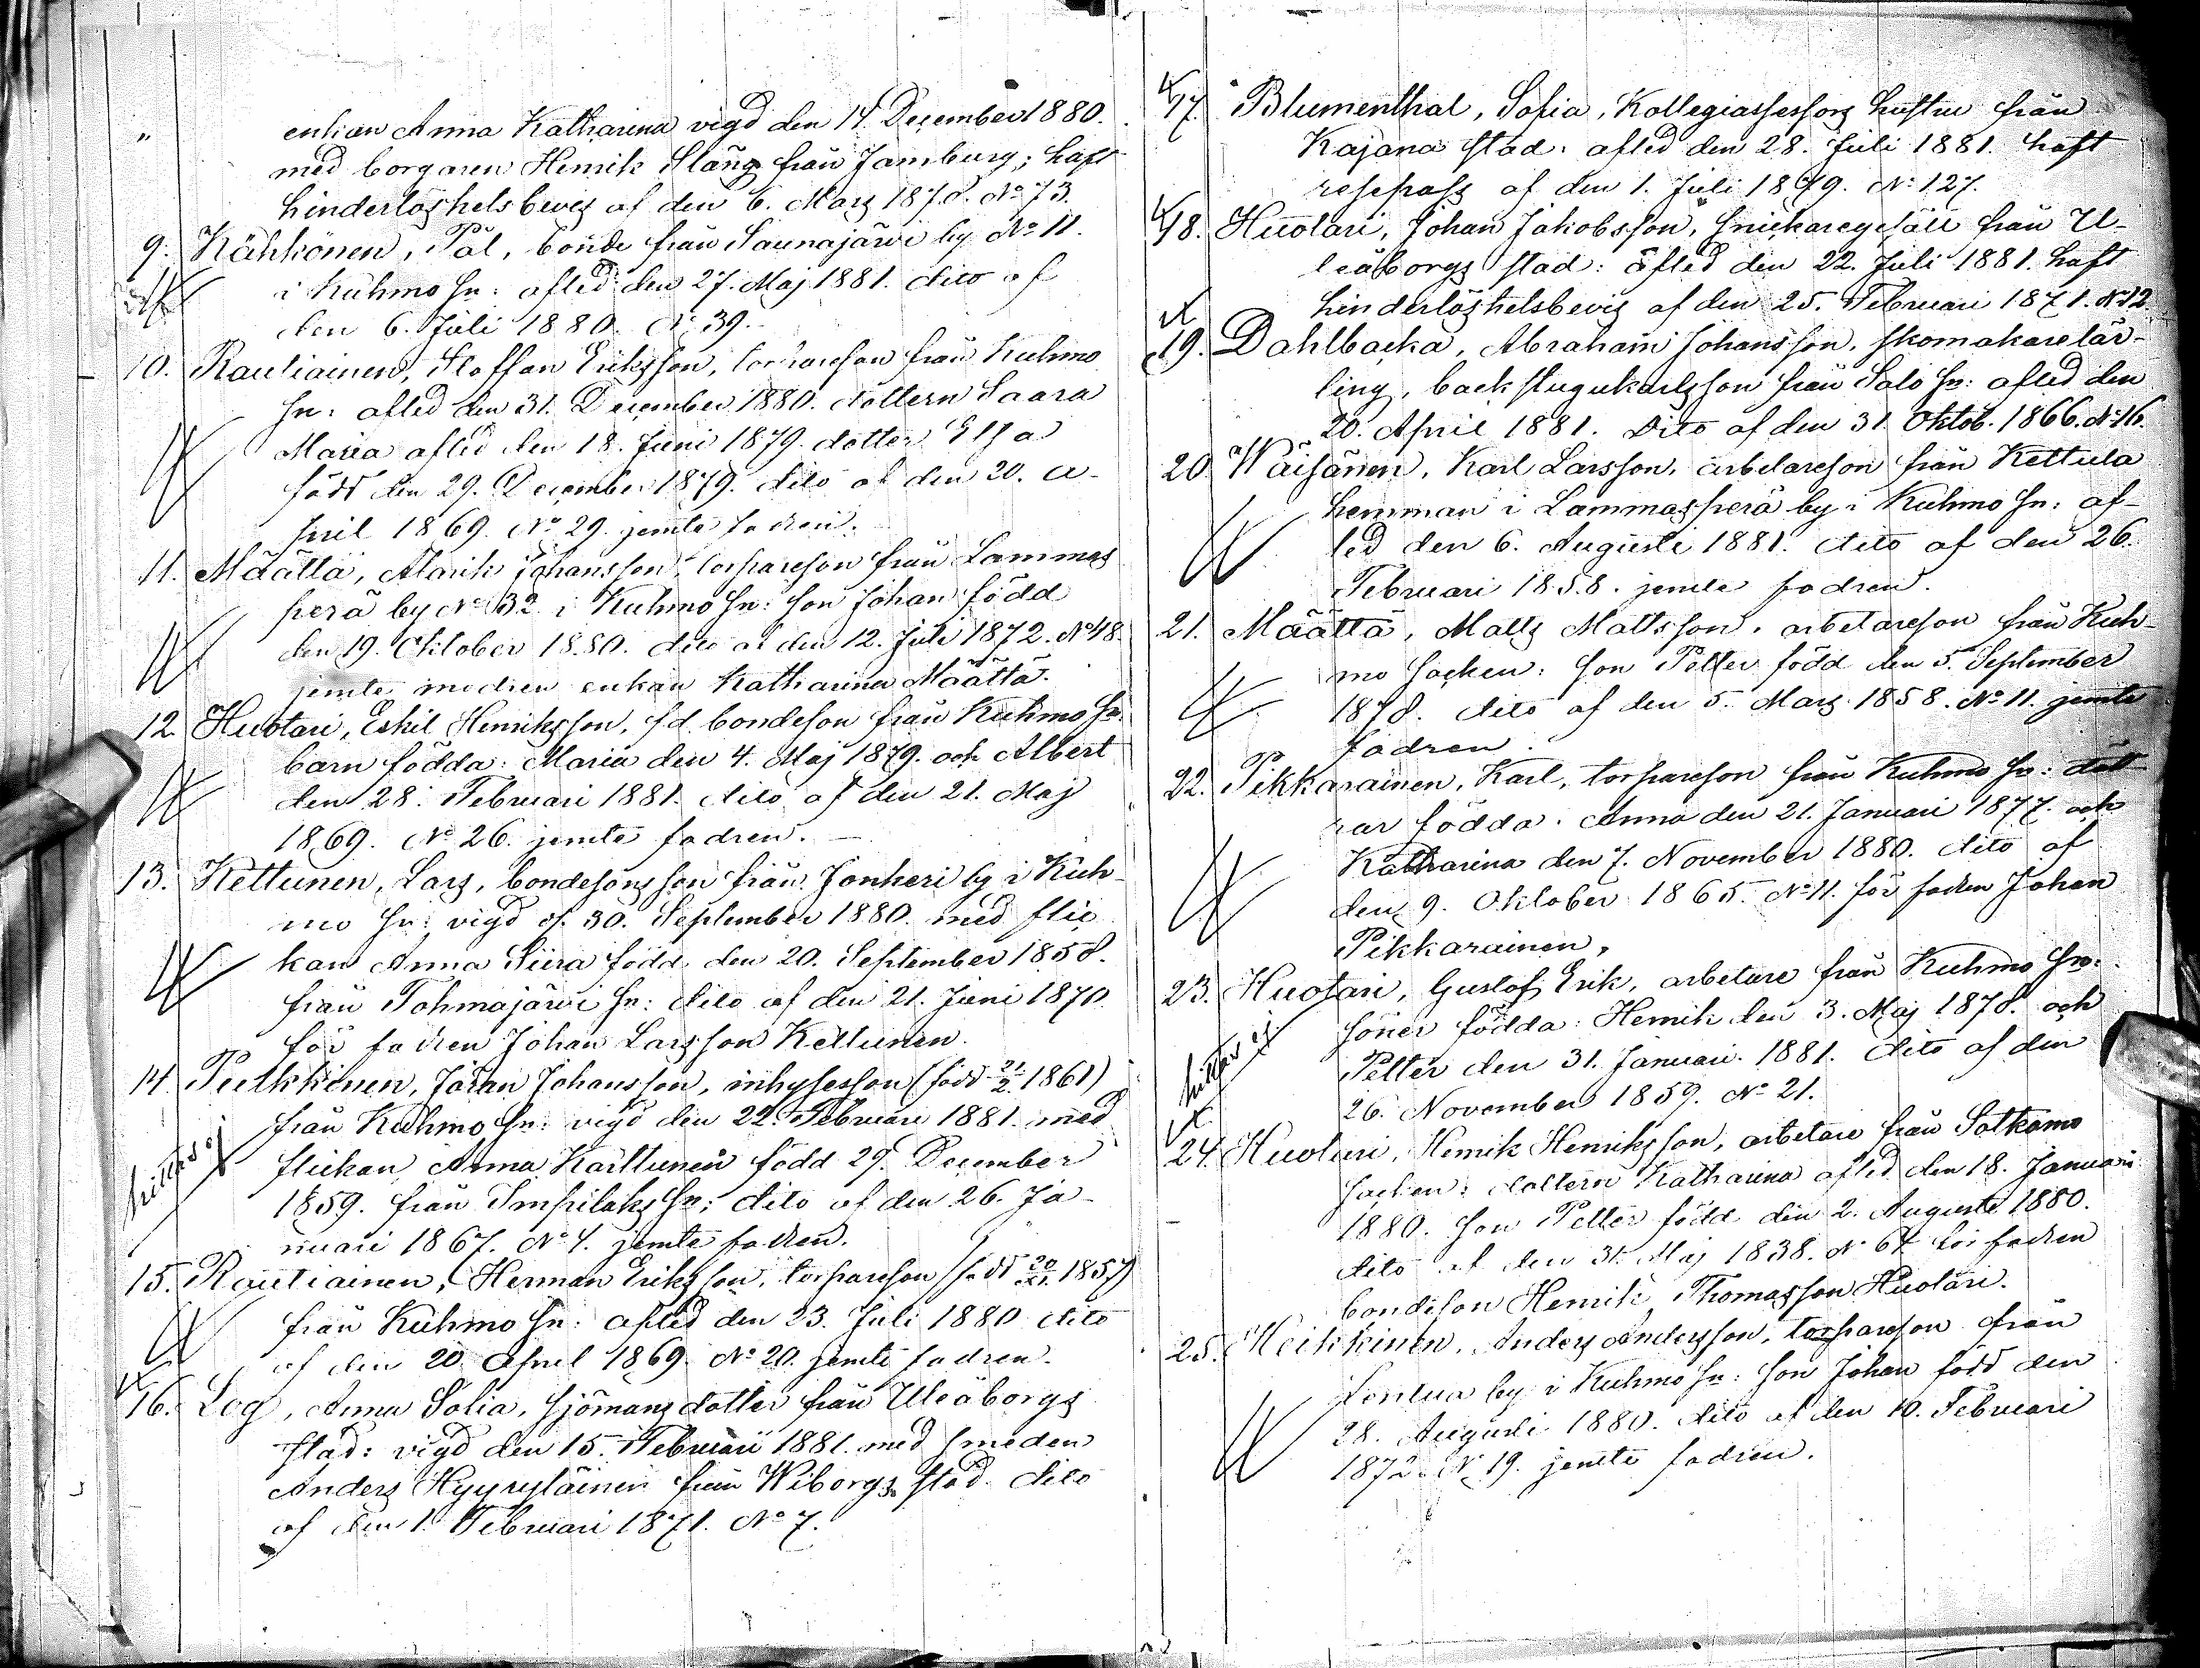 " enkan Anna Katharina vigd den 14 December 1880.
med borgaren Henrik Stång från Jamburg; haft
hinderlöshetsbevis af den 6. Mars 1878. No 73.
9. Kähkönen, Pål, bonde från Saunajärvi by No 11.
i Kuhmo Sn: afled den 27. Maj 1881. dito af
den 6. Juli 1880. No 39.
10. Rautiainen, Staffan Eriksson, torpareson från Kuhmo
Sn: afled den 31. December 1880. dottern Saara
Maria afled den 18. Juni 1879. dotter Elsa
född den 29. December 1879. dito af den 20. A-
pril 1869. No 29. jemte fadren.
11. Määttä, Alarik Johansson, torpareson från Lammas
perä by No 32 i Kuhmo Sn: son Johan född
den 19. Oktober 1880. dito af den 12. Juli 1872. No 48.
jemte modren enkan Katharina Määttä.
12. Huotari, Eskil Henriksson, fd. bondeson från Kuhmo Sn.
barn födda: Maria den 4. Maj 1879. och Albert
den 28. Februari 1881. dito af den 21. Maj
1869. No 26. jemte fadren.
13. Kettunen, Lars, bondesonsson från Jonkeri by i Kuh-
mo Sn: vigd d. 30. September 1880. med flic
kan Anna Siira född den 20. September 1858.
från Tohmajärvi Sn: dito af den 21. Juni 1870.
för fadren Johan Larsson Kettunen.
14. Pulkkinen, Johan Johansson, inhysesson (född 21/2 1861)
från Kuhmo Sn: vigd den 22. Februari 1881. med
flickan Anna Karttunen född 29. December
1859. från Impilaks Sn: dito af den 26. Ja-
nuari 1867. No 4. jemte fadren.
15. Rautiainen, Herman Eriksson, torpareson (född 1857)
från Kuhmo Sn: afled den 23. Juli 1880 dito
af den 20. April 1869. No 20. jemte fadren.
16. Log, Anna Sofia, sjömans dotter från Uleåborgs
stad: vigd den 15. Februari 1881. med smeden
Anders Hyyryläinen från Wiborgs stad. dito
af den 1. Februari 1871. No 7.
17. Blumenthal, Sofia, Kollegiassessors hustru från
Kajana stad: afled den 28. Juli 1881. haft
resepass af den 1. Juli 1879. No 127.
18. Huotari, Johan Jakobsson, snickaregesäll från U-
leåborgs stad: afled den 22. Juli 1881. haft
hinderlöshetsbevis af den 25. Februari 1871. No 12.
19. Dahlbacka, Abraham Johansson, skomakarelär-
ling, backstugukarlsson från Salo Sn: afled den
20. April 1881. Dito af den 31 Oktob. 1866. No 16.
20. Wäisänen, Karl Larsson, arbetareson från Kettula
hemman i Lammasperä by i Kuhmo Sn: af-
led den 6. Augusti 1881. dito af den 26.
Februari 1858. jemte fadren.
21. Määttä, Matts Mattsson, arbetareson från Kuh-
mo Socken: son Petter född den 5. September
1878. dito af den 5. Mars 1858. No 11. jemte
fadren.
22. Pikkarainen, Karl, torpareson från Kuhmo Sn: dött
rar födda: Anna den 21. Januari 1877. och
Katharina den 7. November 1880. dito af
den 9. Oktober 1865. No 11. för fadren Johan
Pikkarainen.
23. Huotari, Gustof Erik, arbetare från Kuhmo Sn:
söner födda: Henrik den 3. Maj 1878. och
Petter den 31. Januari 1881. dito af den
26. November 1859. No 21.
24. Huotari, Henrik Henriksson, arbetare från Sotkamo
Socken: dottern Katharina afled den 18. Januari
1880. Son Petter född den 2. Augusti 1880.
dito af den 31. Maj 1838. No 64 för fadren
bondeson Henrik Thomasson Huotari.
25. Heikkinen, Anders Andersson, torpareson från
Lentua by i Kuhmo Sn: son Johan född den
28. Augusti 1880. dito af den 10. Februari
1872. No 19. jemte fadren.